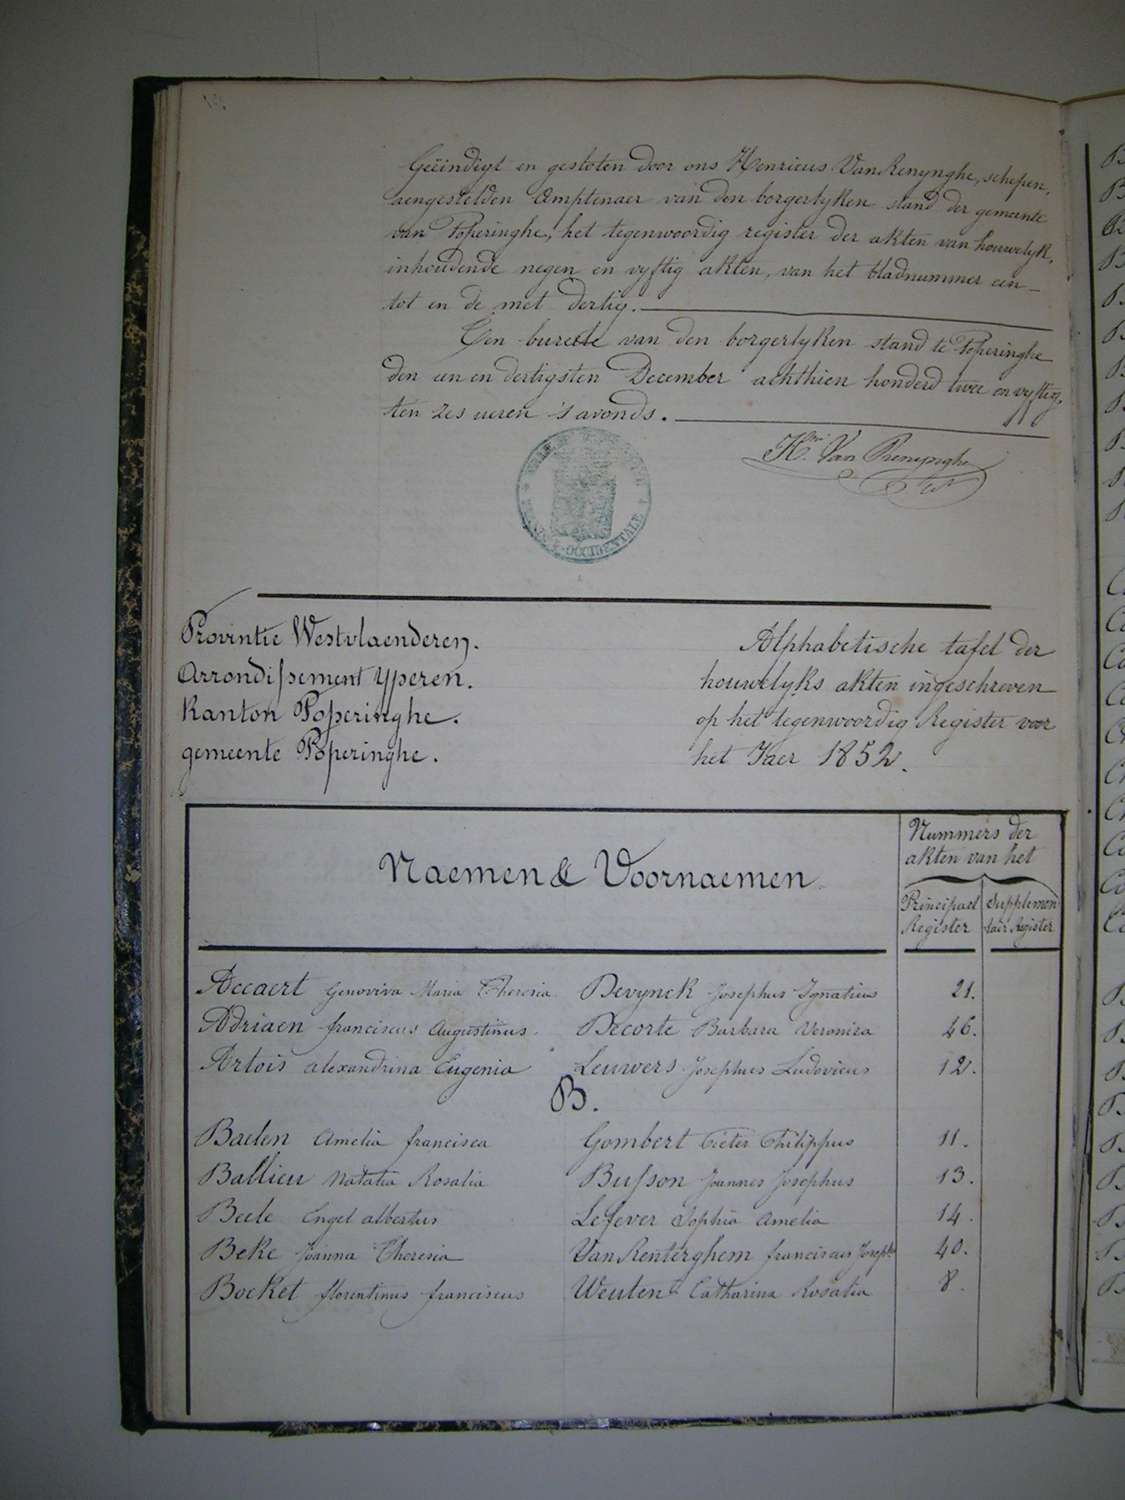 Geëindigt en gesloten door ons Henricus Van Renynghe, schepen,
aengestelden Amptenaer van den borgerlyken stand der gemeente
van Poperinghe, het tegenwoordig register der akten van houwelyk,
inhoudende negen en vyftig akten, van het bladnummer een
tot en de met dertig.
Ten bureele van den borgerlyken stand te Poperinghe
den een en dertigsten December achthien honderd twee en vyftig,
ten zes ueren 's avonds.
Hri Van Renynghe
VILLE DE POPERINGHE
FLANDRE OCCIDENTALE
Provintie Westvlaenderen.
Arrondissement Yperen.
Kanton Poperinghe.
gemeente Poperinghe.
Alphabetische tafel der
houwelyks akten ingeschreven
op het tegenwoordig Register voor
het Jaer 1852.
Naemen & Voornaemen
Nummers der
akten van het
Principael Register
Supplemen-tair Register
Accaert Genoviva Maria Theresia Devynck Josephus Ignatius 21.
Adriaen franciscus Augustinus. Decorte Barbara Veronica 46.
Artois alexandrina Eugenia Leuwers Josephus Ludovicus 12.
B.
Baelen Amelia francisca Gombert Pieter Philippus 11.
Ballieu Natalia Rosalia Busson Joannes Josephus 13.
Beele Engel albertus Lefever Sophia Amelia 14.
Beke Joanna Theresia Van Renterghem franciscus Josephs 40.
Bocket florentinus franciscus Weuten Catharina Rosalia 8.